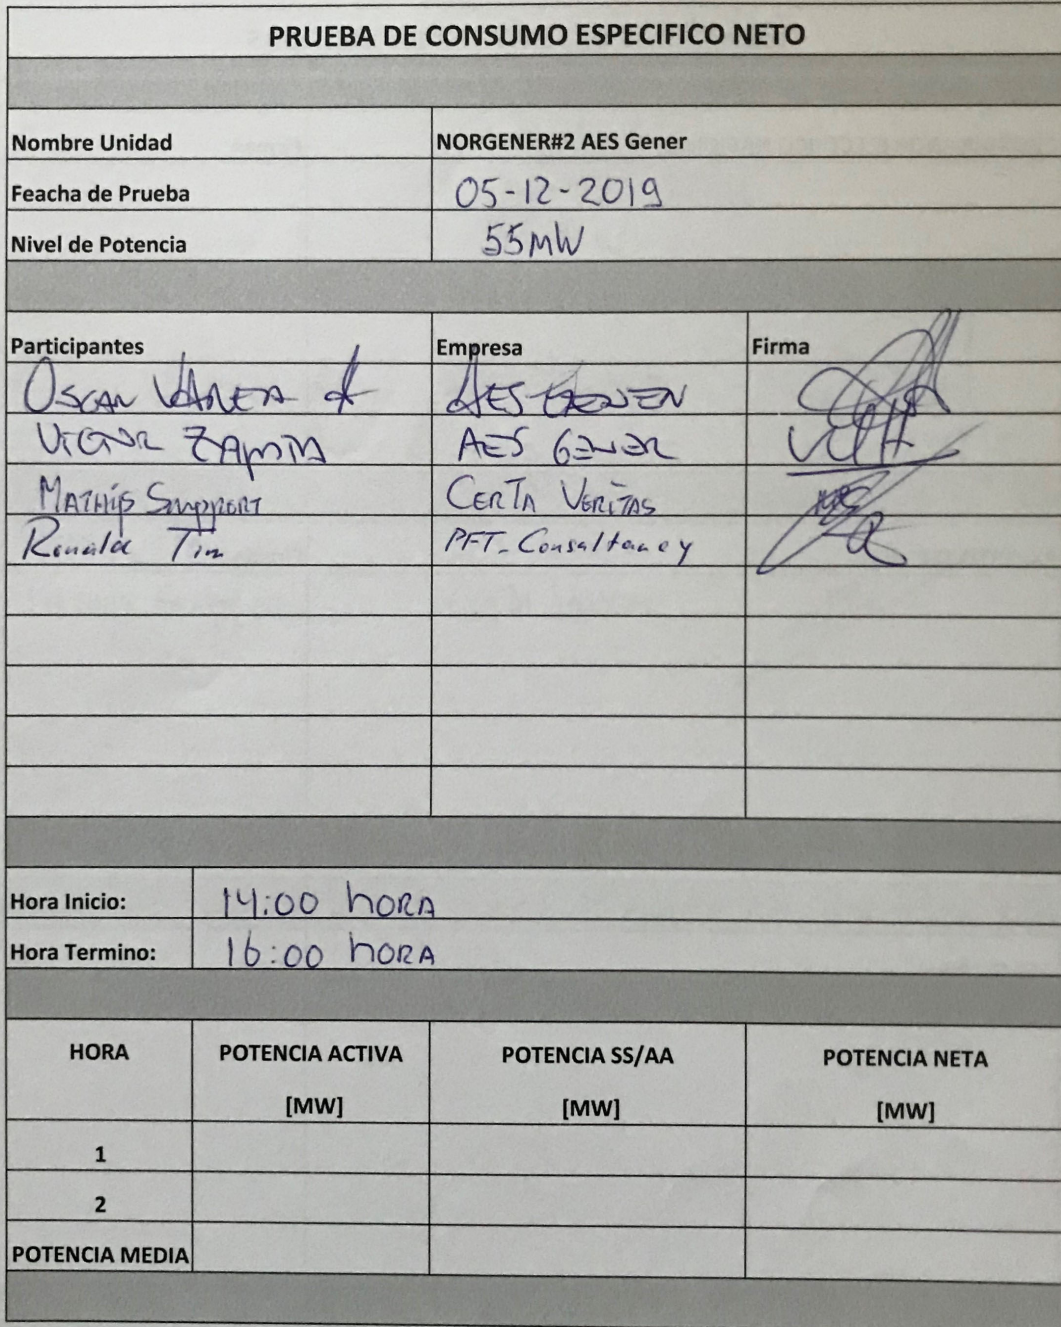 PRUEBA DE CONSUMO ESPECIFICO NETO
Nombre Unidad NORGENER#2 AES Gener
Feacha de Prueba 05-12-2019
Nivel de Potencia 55MW
Participantes Empresa Firma
OSCAR AES GENER
VICTOR ZAPATA AES GENER
MATHIJS CERTA VERITAS
Ronald Tim PFT-Consultancy
Hora Inicio: 14:00 hORA
Hora Termino: 16:00 hORA
HORA POTENCIA ACTIVA POTENCIA SS/AA POTENCIA NETA
[MW] [MW] [MW]
1
2
POTENCIA MEDIA